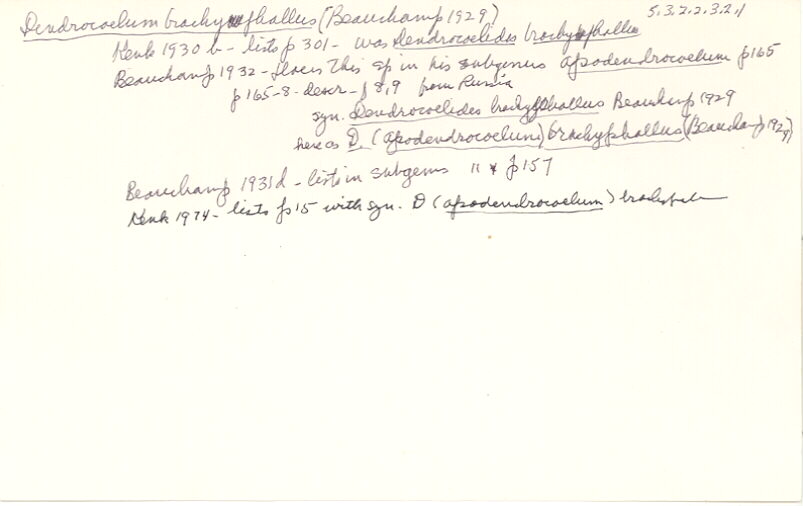 Dendrocoelum brachyphallus (Beauchamp 1929) 5.3.2.2.3.2.1
Kenk 1930 b - lists p 301 - was Dendrocoelides brachyphallus
Beauchamp 1932 - places this sp in his subgenus apodendrocoelum p165
p165-8 - descr - f 8,9 from Russia
syn. Dendrocoelides brachyphallus Beauchamp 1929
here as D. (apodendrocoelum) brachyphallus (Beauchamp 1929)
Beauchamp 1931d - lists in subgenus " p 157
Kenk 1974 - lists p15 with syn. D (apodendrocoelum)